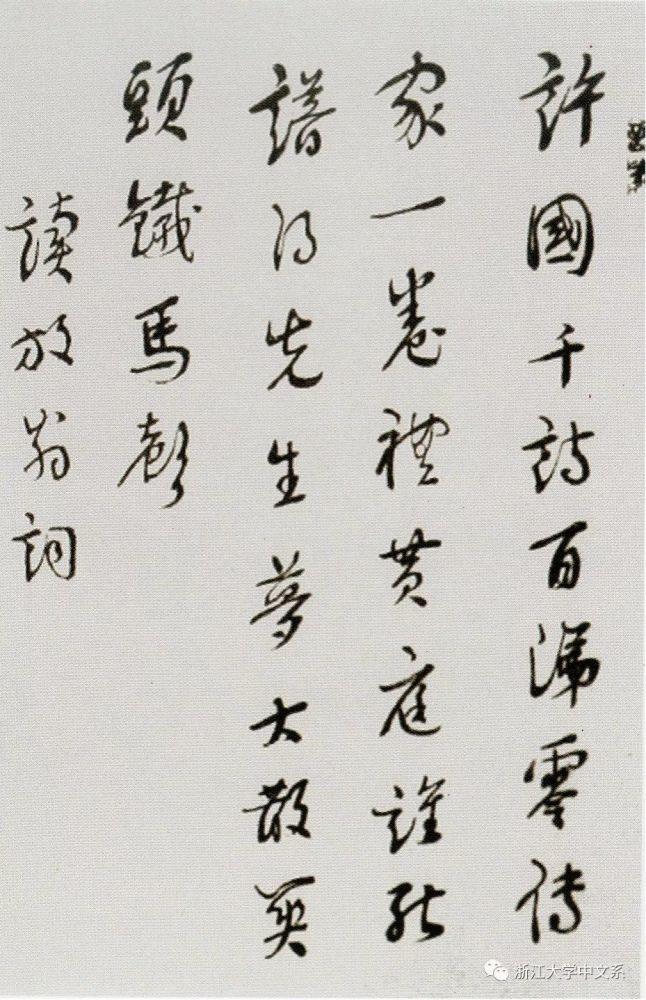 許國千詩百涕零傳
家一卷禮黄庭誰能
譜得先生夢大散關
頭鐵馬聲
讀放翁詞
浙江大学中文系